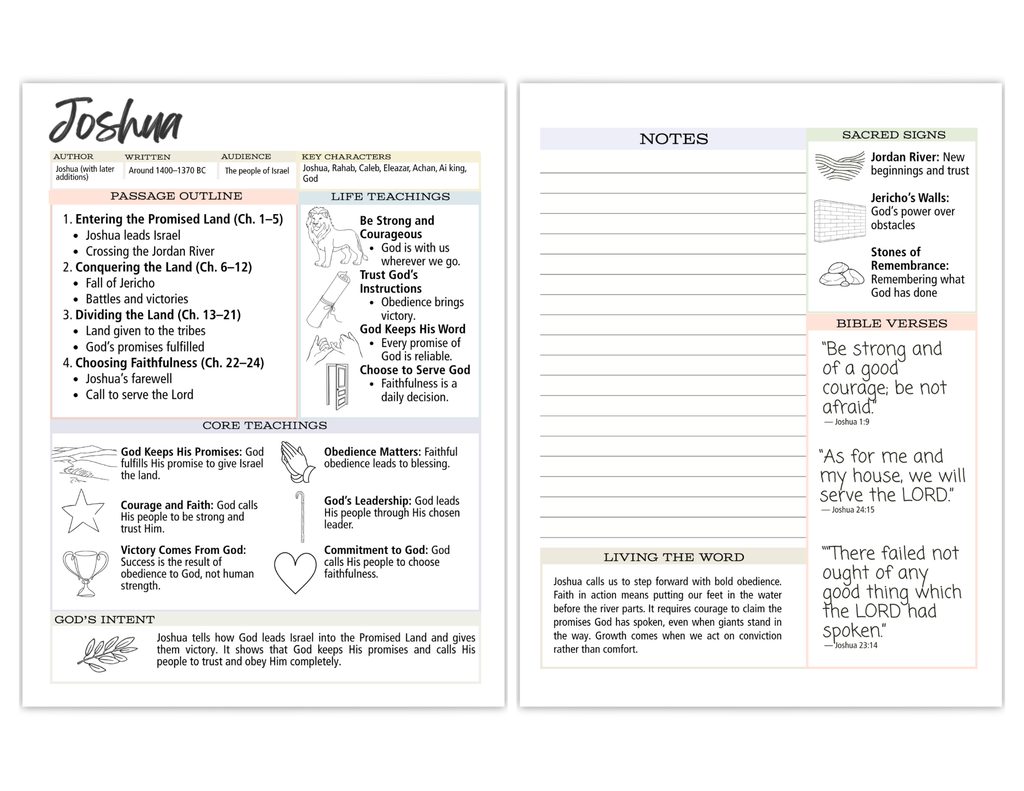 Joshua
AUTHOR
Joshua (with later
additions)
WRITTEN
Around 1400–1370 BC
AUDIENCE
The people of Israel
KEY CHARACTERS
Joshua, Rahab, Caleb, Eleazar, Achan, Ai king,
God
PASSAGE OUTLINE
1. Entering the Promised Land (Ch. 1–5)
• Joshua leads Israel
• Crossing the Jordan River
2. Conquering the Land (Ch. 6–12)
• Fall of Jericho
• Battles and victories
3. Dividing the Land (Ch. 13–21)
• Land given to the tribes
• God's promises fulfilled
4. Choosing Faithfulness (Ch. 22–24)
• Joshua's farewell
• Call to serve the Lord
LIFE TEACHINGS
Be Strong and
Courageous
• God is with us
wherever we go.
Trust God's
Instructions
• Obedience brings
victory.
God Keeps His Word
• Every promise of
God is reliable.
Choose to Serve God
• Faithfulness is a
daily decision.
CORE TEACHINGS
God Keeps His Promises: God
fulfills His promise to give Israel
the land.
Courage and Faith: God calls
His people to be strong and
trust Him.
Victory Comes From God:
Success is the result of
obedience to God, not human
strength.
Obedience Matters: Faithful
obedience leads to blessing.
God's Leadership: God leads
His people through His chosen
leader.
Commitment to God: God
calls His people to choose
faithfulness.
GOD'S INTENT
Joshua tells how God leads Israel into the Promised Land and gives
them victory. It shows that God keeps His promises and calls His
people to trust and obey Him completely.
NOTES
LIVING THE WORD
Joshua calls us to step forward with bold obedience.
Faith in action means putting our feet in the water
before the river parts. It requires courage to claim the
promises God has spoken, even when giants stand in
the way. Growth comes when we act on conviction
rather than comfort.
SACRED SIGNS
Jordan River: New
beginnings and trust
Jericho's Walls:
God's power over
obstacles
Stones of
Remembrance:
Remembering what
God has done
BIBLE VERSES
"Be strong and
of a good
courage; be not
afraid."
— Joshua 1:9
"As for me and
my house, we will
serve the LORD."
— Joshua 24:15
""There failed not
ought of any
good thing which
the LORD had
spoken."
— Joshua 23:14